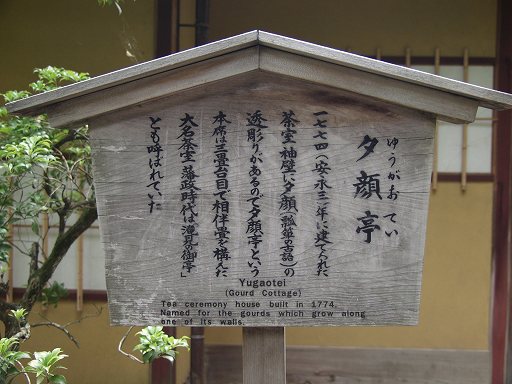 ゆうがお てい
夕顔亭
一七七四(安永三)年に建てられた
茶室 袖壁に夕顔(瓢箪の古語)の
透彫りがあるので夕顔亭という
本席は三畳台目で相伴畳を構えた
大名茶室 藩政時代は「滝見の御亭」
とも呼ばれていた
Yugaotei
(Gourd Cottage)
Tea ceremony house built in 1774.
Named for the gourds which grow along
one of its walls.